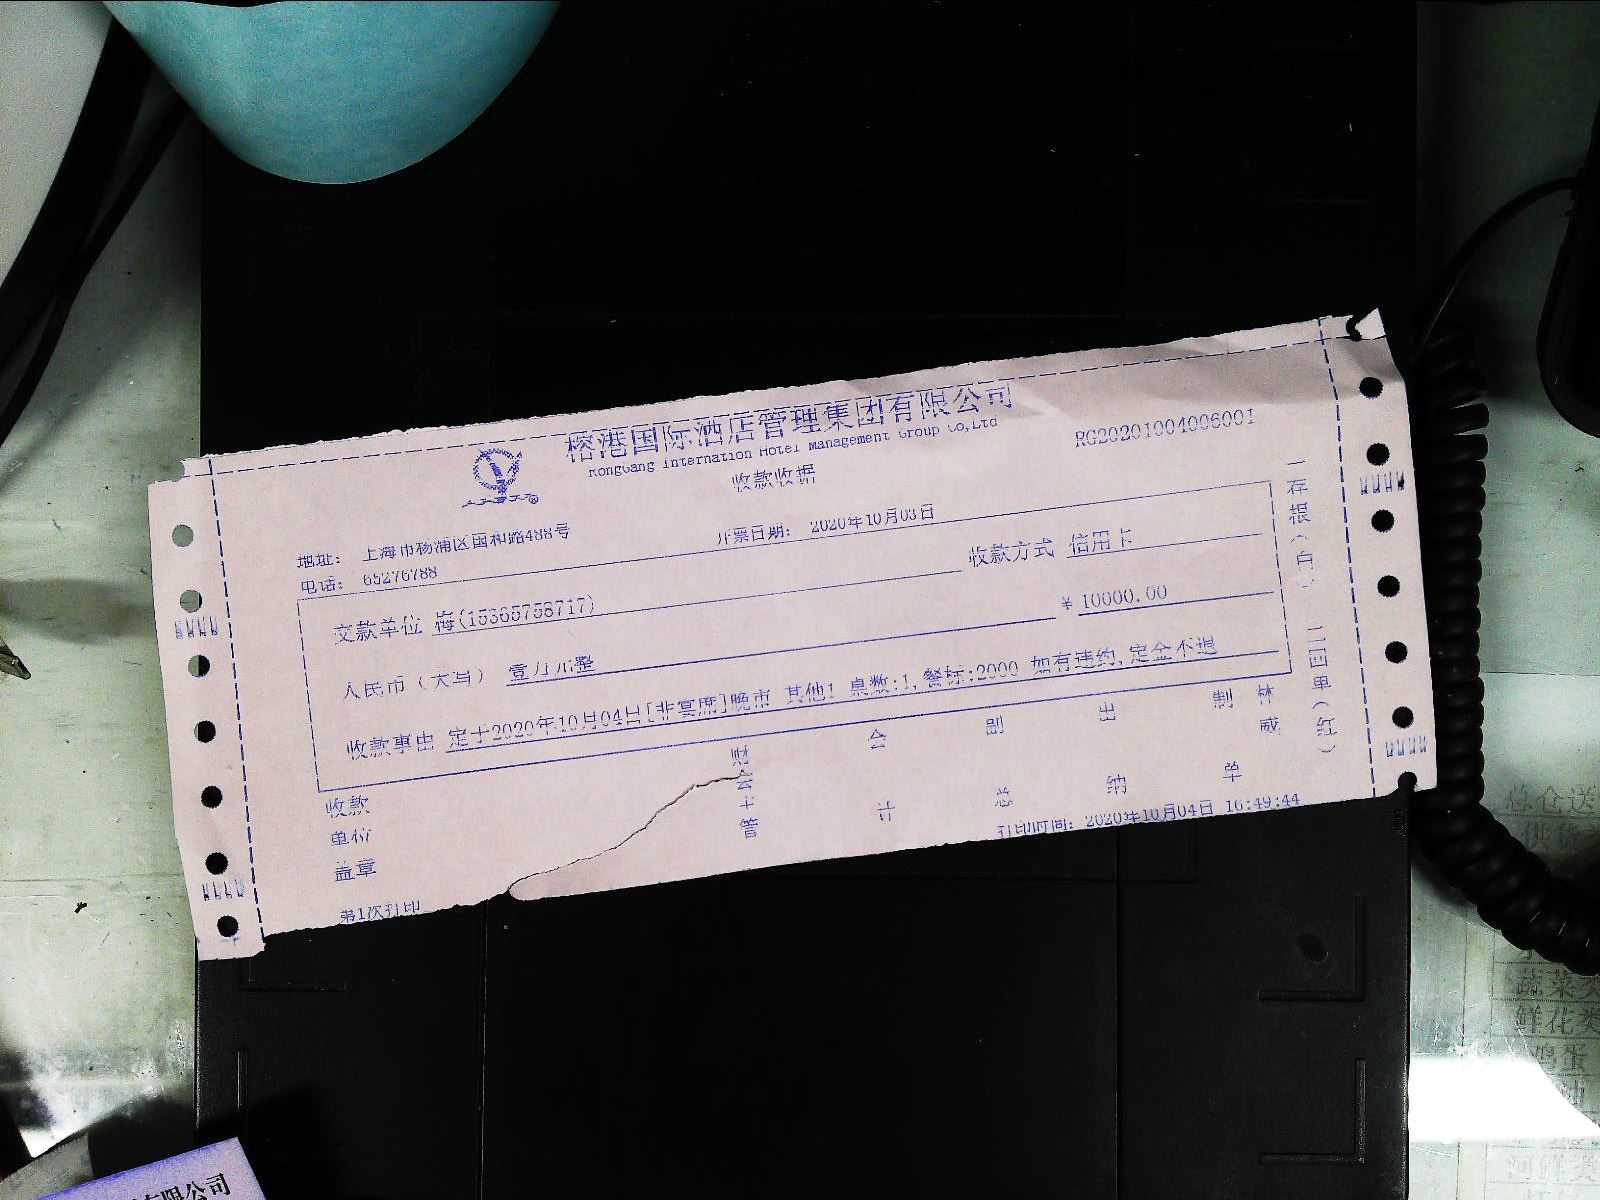 榕港国际酒店管理集团有限公司
RongGang Internation Hotel Management Group Co,Ltd
RG20201004006001
收款收据
地址： 上海市杨浦区国和路488号
开票日期： 2020年10月03日
电话： 65276788
收款方式 信用卡
交款单位 梅(15365758717)
人民币（大写） 壹万元整
¥ 10000.00
收款事由 定于2020年10月04日[非宴席]晚市 其他! 桌数:1,餐标:2000 如有违约,定金不退
收款
单位
盖章
财会主管
会计
副总
出纳
制单
林威
第1次打印
打印时间：2020年10月04日 16:49:44
一存根（白） 二回单（红）
总仓送
供货
蔬菜类
鲜花类
鸡蛋
有限公司